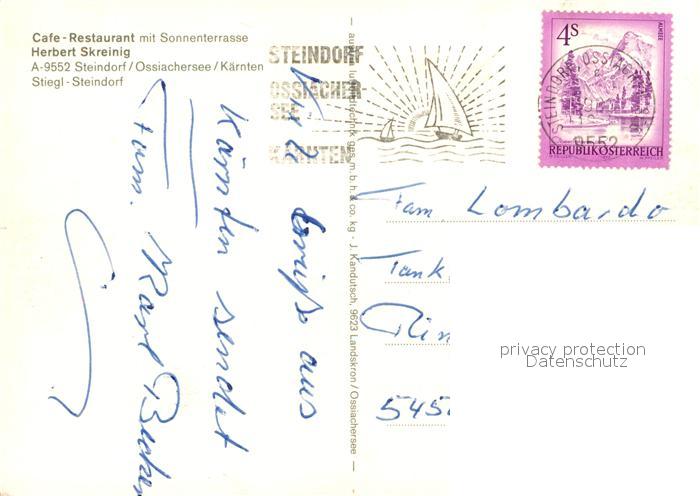 Cafe-Restaurant mit Sonnenterrasse
Herbert Skreinig
A-9552 Steindorf/Ossiachersee/Kärnten
Stiegl-Steindorf
STEINDORF
OSSIACHER-
SEE
KÄRNTEN
4S
ALMSEE
REPUBLIK ÖSTERREICH
STEINDORF OSSIACH
9552
ges. m. b. h. & co. kg - J. Kandutsch, 9623 Landskron/Ossiachersee
Gruß aus
Kärnten sendet
Fam.
Fam. Lombardo
Tank
545
privacy protection
Datenschutz